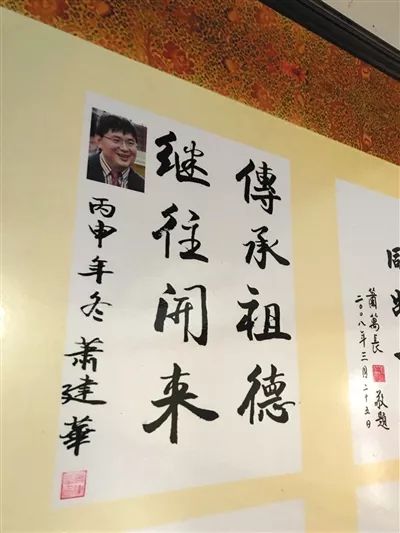 傳承祖德
继往开来
丙申年冬 萧建華
蕭萬長 敬題
二〇〇八年三月二十五日